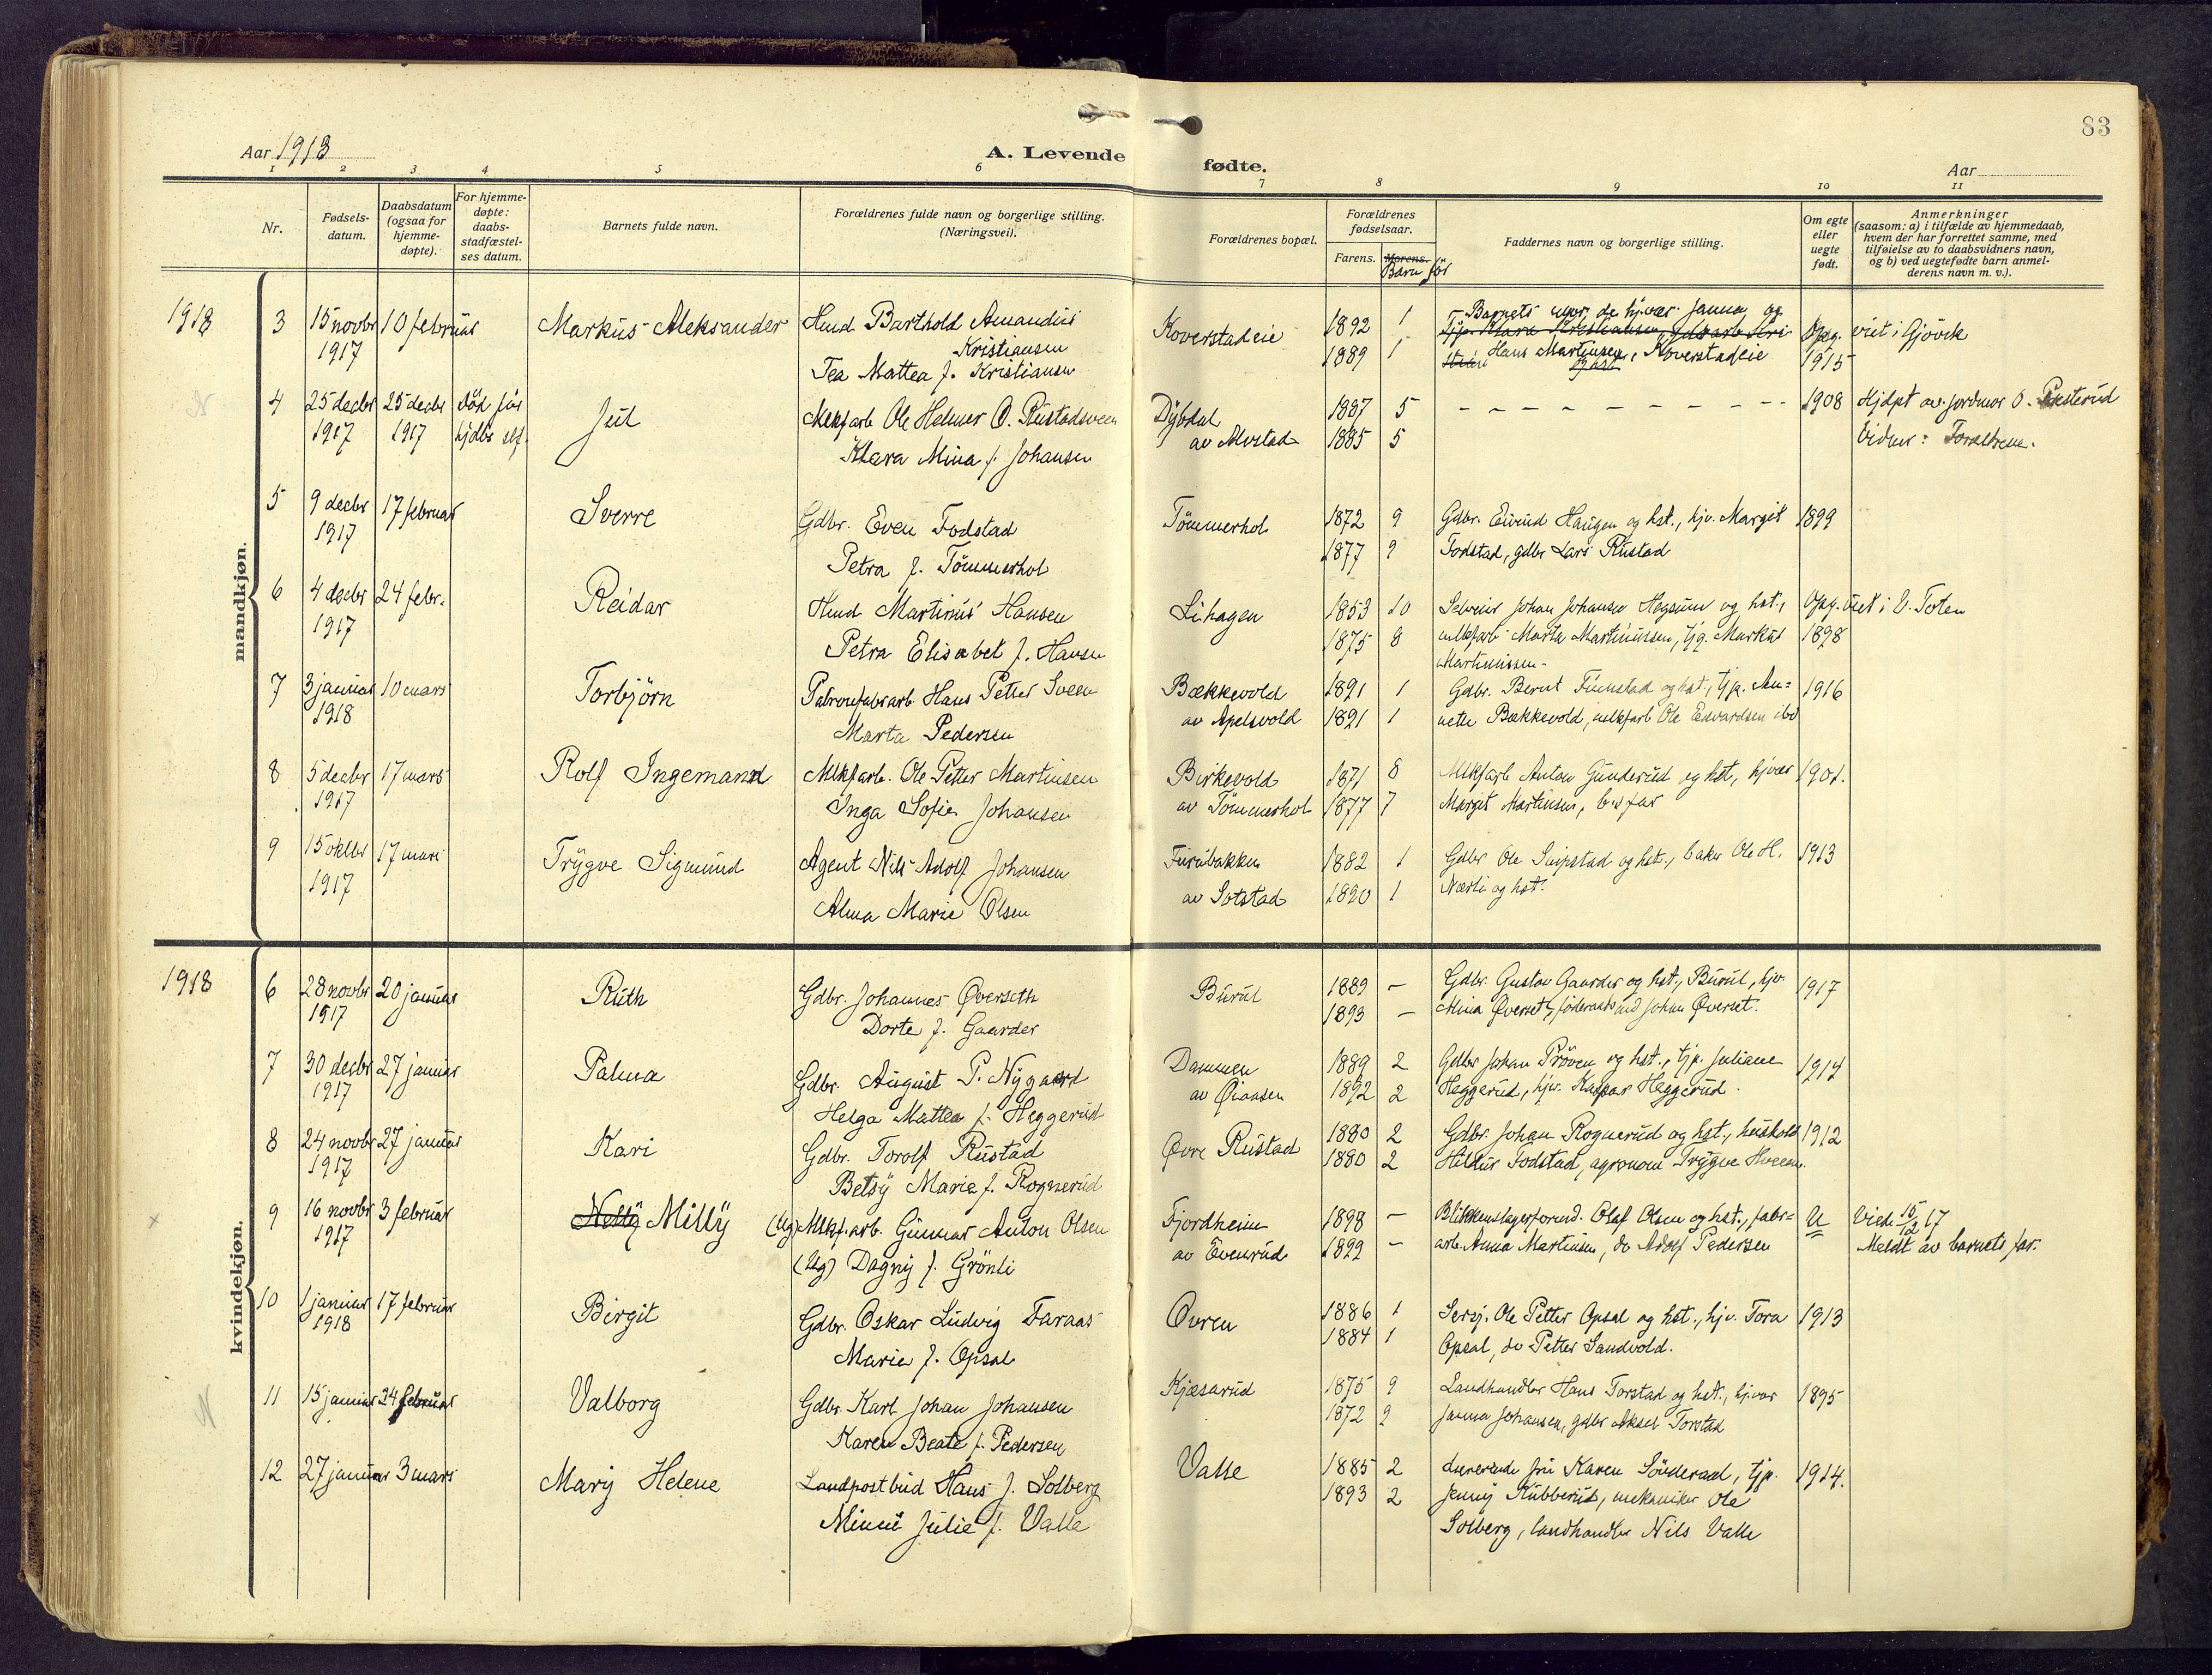 83
Aar 1918
A. Levende fødte.
Aar
1 2 3 4 5 6 7 8 9 10 11
Nr.
Fødsels-
datum.
Daabsdatum
(ogsaa for
hjemme-
døpte).
For hjemme-
døpte:
daabs-
stadfæstel-
ses datum.
Barnets fulde navn.
Forældrenes fulde navn og borgerlige stilling.
(Næringsvei).
Forældrenes bopæl.
Forældrenes
fødselsaar.
Farens. Morens.
Barn før
Faddernes navn og borgerlige stilling.
Om egte
eller
uegte
født.
Anmerkninger
(saasom: a) i tilfælde av hjemmedaab,
hvem der har forrettet samme, med
tilføielse av to daabsvidners navn,
og b) ved uegtefødte barn anmel-
derens navn m. v.).
mandkjøn.
1918 3 15 novbr 10 februar Markus Aleksander Hmd Barthold Amandus Koverstadeie 1892 1 Barnets mor, de hjvær. Janna, og Opg. viet i Gjövik
1917 Kristiansen 1889 1 Hans Martinsen, Koverstadeie 1915
Tea Mattea f. Kristiansen
4 25 decbr 25 decbr död før Jul Mlkfarb Ole Helmer O. Rustadsveen Dybdal 1887 5 1908 Hjdpt av jordmor O.
1917 1917 hjdbs stf. av Alvstad 1885 5 Vidner: Forældrene.
Klara Mina f. Johansen
5 9 decbr 17 februar Sverre Gdbr. Even Fodstad Tömmerhol 1872 9 Gdbr. Eivind Haugen og hst., hjv. Margit 1899
1917 Petra f. Tömmerhol 1877 9 Fodstad, gdbr Lars Rustad
6 4 decbr 24 febr. Reidar Hmd Martinus Hansen Lihagen 1853 10 Selveier Johan Johansen Hegsum og hst., Opg. viet i V. Toten
1917 Petra Elisabet f. Hansen 1875 8 mlkfarb Marta Martinussen, tjg. Markus 1898
Martinussen.
7 3 januar 10 mars Torbjörn Patronfabrarb. Hans Petter Sveen Bækkevold 1891 1 Gdbr. Bernt Finstad og hst., tjp. An= 1916
1918 Marta Pedersen av Apelsvold 1891 1 nette Bækkevold, mlkfarb Ole Edvardsen ibd
8 5 decbr 17 mars Rolf Ingemann Mlkfarb. Ole Petter Martinsen Birkevold 1871 8 Mlkfarb Anton Gunderud og hst, hjvær 1901.
1917 Inga Sofie Johansen av Tömmerhol 1877 7 Margit Martinsen, b's far
9 15 oktbr 17 mars Trygve Sigmund Agent Nils Adolf Johansen Furubakken 1882 1 Gdbr Ole Snipstad og hst., baker Ole H. 1913
1917 Alma Marie Olsen av Sotstad 1890 1 Nærli og hst.
kvindekjøn.
1918 6 28 novbr 20 januar Ruth Gdbr. Johannes Øverseth Burul 1889 – Gdbr. Gustav Gaarder og hst., Burul, hjv. 1917
1917 Dorte f. Gaarder 1893 – Mina Øverset, föderaadsmd Johan Øverset.
7 30 decbr 27 januar Palma Gdbr. August P. Nygaard Dammen 1889 2 Gdbr Johan Pröven og hst., tjp. Juliane 1914
1917 Helga Mattea f. Heggerud av Øiaasen 1892 2 Heggerud, hjv. Kaspar Heggerud.
8 24 novbr 27 januar Kari Gdbr. Torolf Rustad Øvre Rustad 1880 2 Gdbr. Johan Rognerud og hst., hushold 1912
1917 Betsy Marie f. Rognerud 1880 2 Hildur Fodstad, agronom Trygve Hveem.
9 16 novbr 3 februar Nelly Milly (Ug) Mlkf.arb. Gunnar Anton Olsen Fjordheim 1898 – Blikkenslagerformd. Olaf Olsen og hst., fabr= U Viede 15/12 17
1917 (Ug) Dagny f. Grönli av Evenrud 1899 – arb. Anna Martinsen, do Adolf Pedersen Meldt av barnets far.
10 1 januar 17 februar Birgit Gdbr. Oskar Ludvig Faraas Øvren 1886 1 Sersj. Ole Petter Opsal og hst., hjv. Tora 1913
1918 Marie f. Opsal 1884 1 Opsal, do Petter Sandvold.
11 15 januar 24 februar Valborg Gdbr. Karl Johan Johansen Kjæsarud 1875 9 Landhandler Hans Torstad og hst., hjvær 1895
Karen Beate f. Pedersen 1872 9 Janna Johansen, gdbr Aksel Torstad
12 27 januar 3 mars Mary Helene Landpostbud Hans J. Solberg Valle 1885 2 Lærerinde frü Karen Sönderaal, tjp. 1914.
Minni Julie f. Valle 1893 2 Jenny Kubberud, mekaniker Ole
Solberg, landhandler Nils Valle